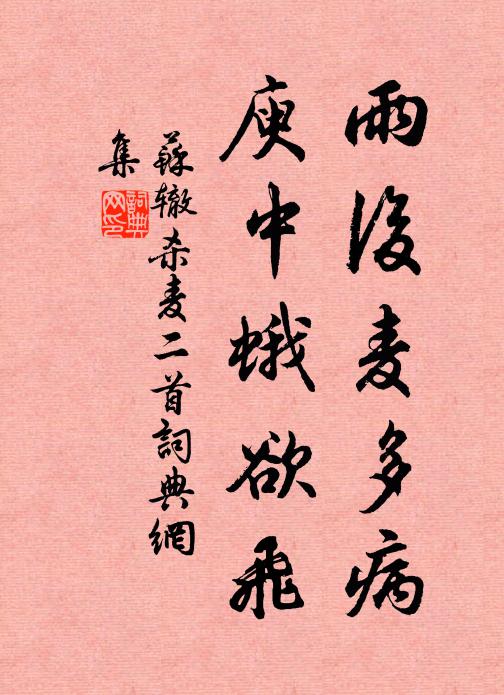 雨後麦多病
庾中蛾欲飛
蘇辙杀麦二首詞典網
集
詞典
网印